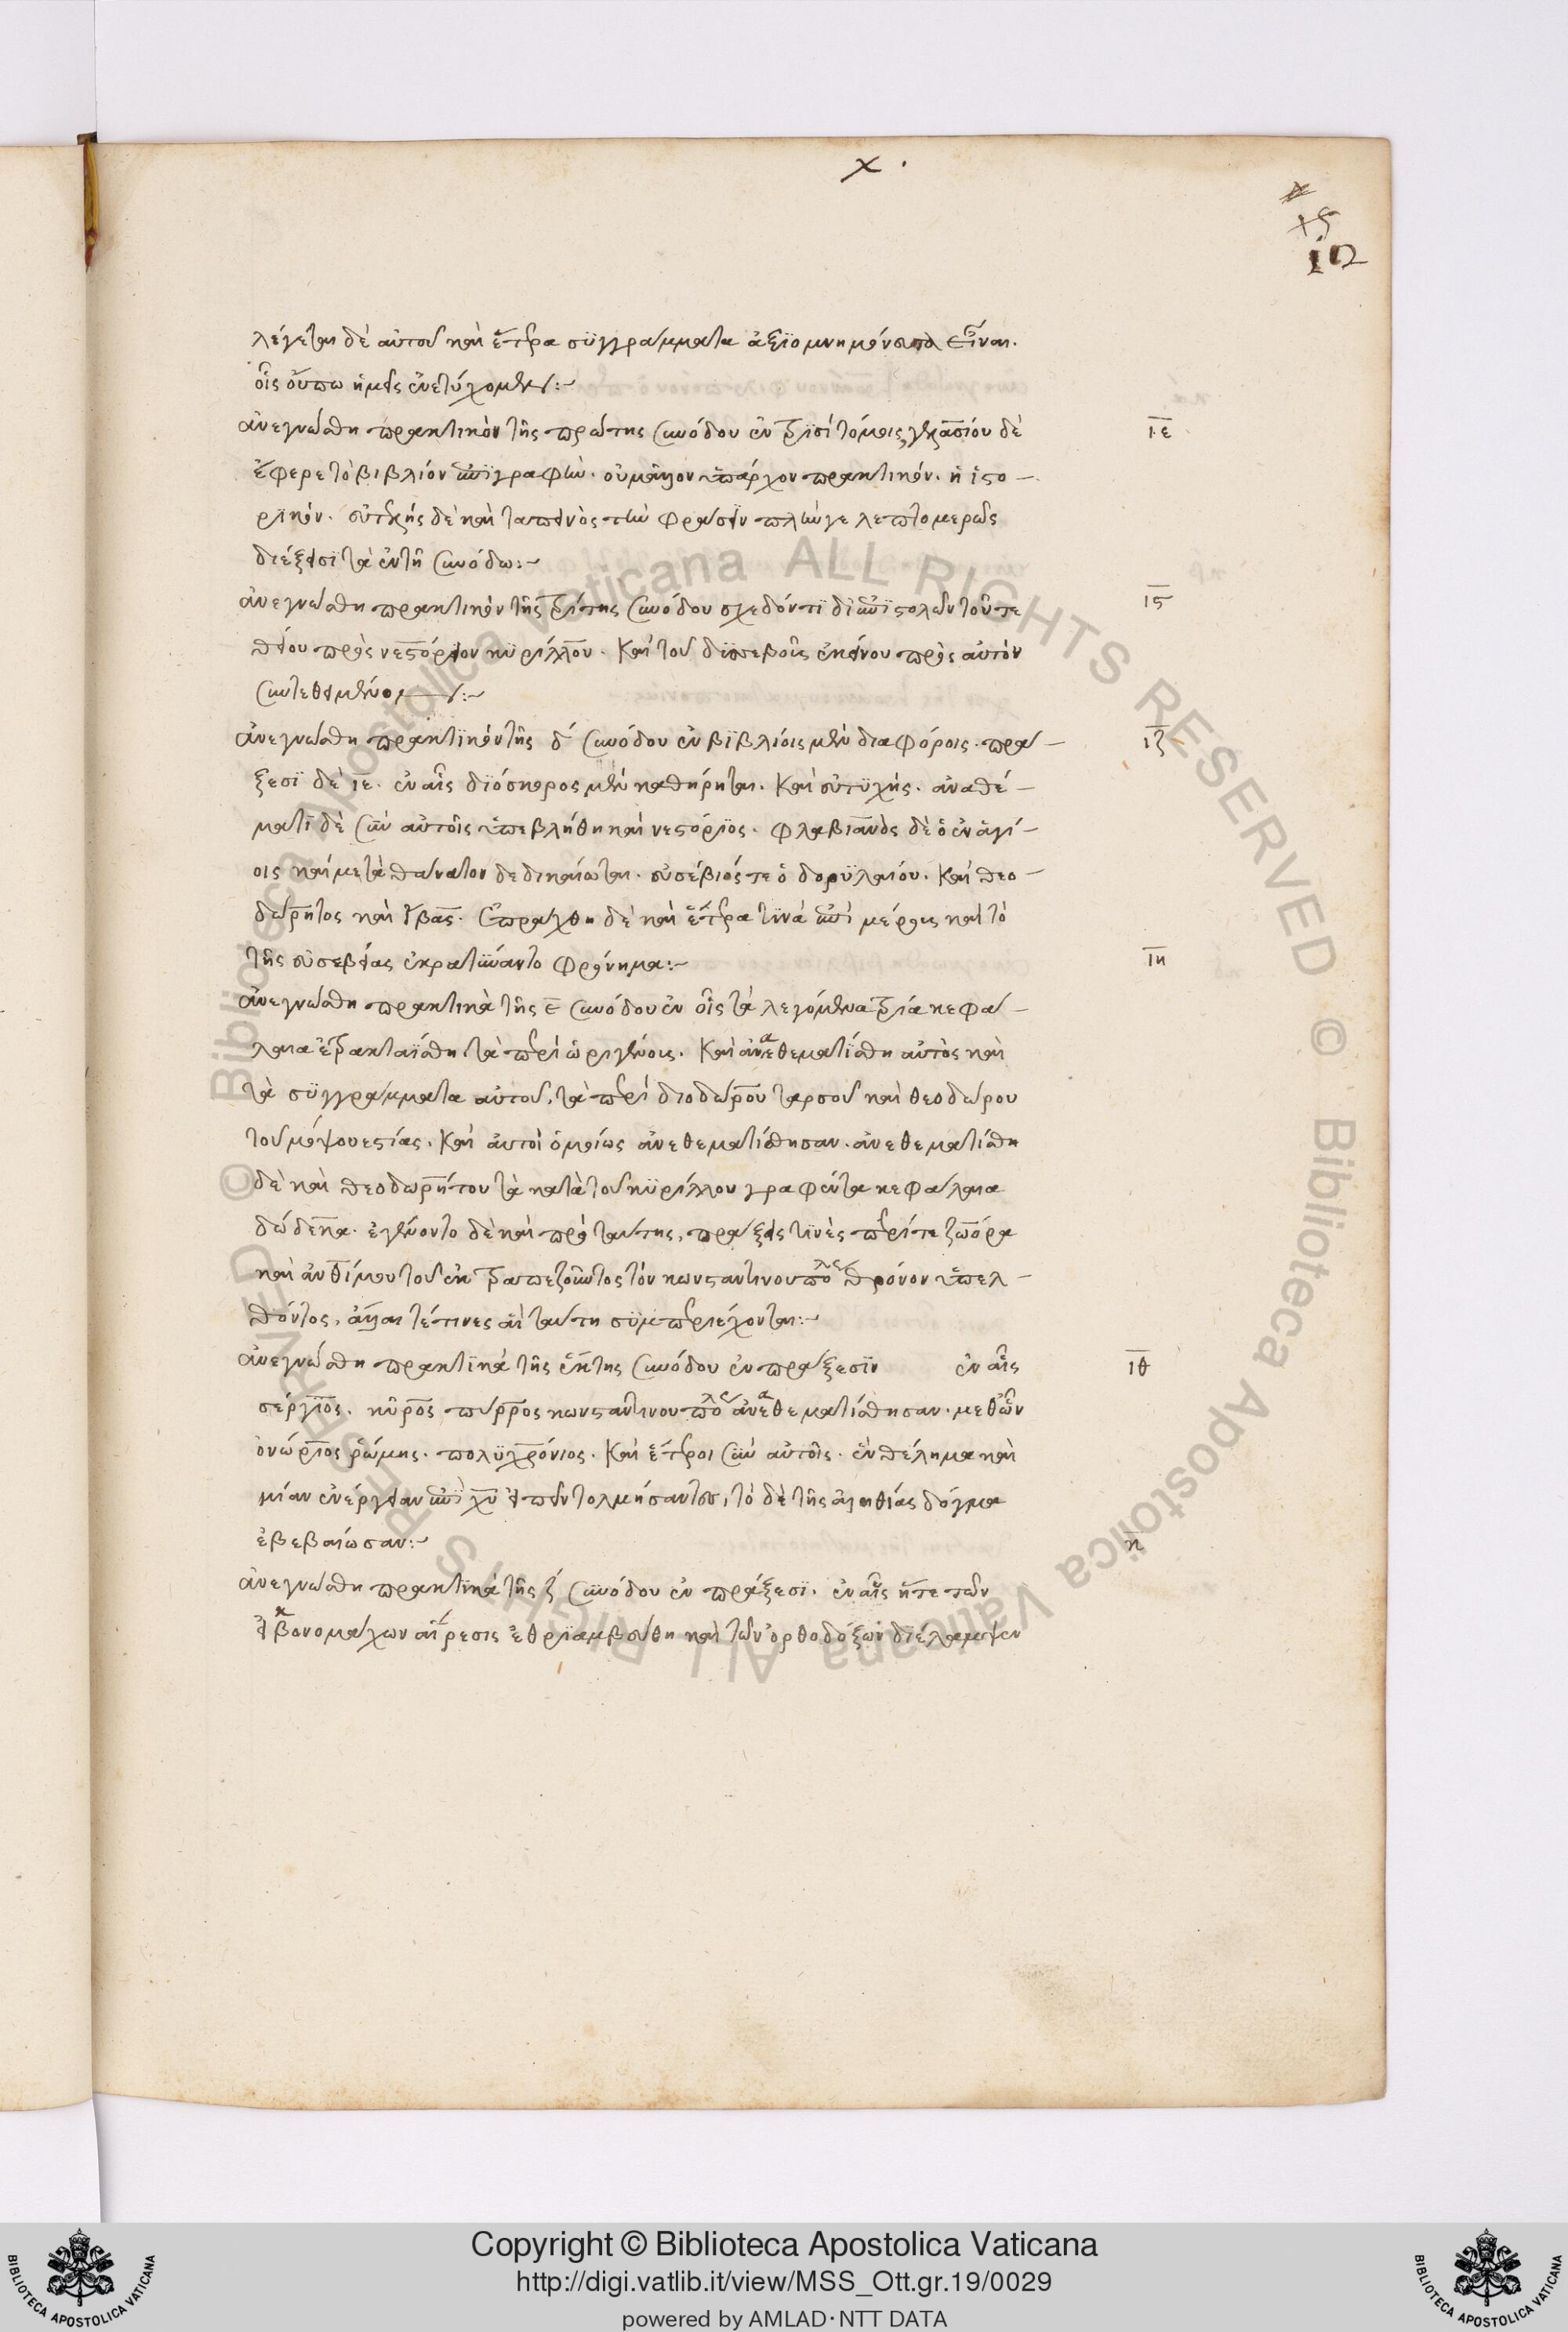 χ ·
ις
10
λέγεται δὲ αὐτοῦ καὶ ἕτερα συγγράμματα ἀξιομνημόνευτα εἶναι.
οἷς οὔπω ἡμεῖς ἐνετύχομεν:~
ἀνεγνώσθη πρακτικὸν τῆς πρώτης συνόδου ἐν τρισὶ τόμοις, γελασίου δὲ
ιε
ἔφερε τὸ βιβλίον ἐπιγραφήν. οὐ μᾶλλον ὑπάρχον πρακτικόν. ἢ ἱστο-
ρικόν. εὐτελὴς δὲ καὶ ταπεινὸς τὴν φράσιν πλήν γε λεπτομερῶς
διέξεισι τὰ ἐν τῇ συνόδω:~
ἀνεγνώσθη πρακτικὸν τῆς τρίτης συνόδου σχεδόν τι δι' ἐπιστολῶν τοῦ τε
ις
θείου πρὸς νεστόριον κυρίλλου. καὶ τοῦ δυσσεβοῦς ἐκείνου πρὸς αὐτὸν
συντεθειμένον:~
ἀνεγνώσθη πρακτικὸν τῆς δ΄ συνόδου ἐν βιβλίοις μὲν διαφόροις. πρά-
ιζ
ξεσι δὲ ιε. ἐν αἷς διόσκορος μὲν καθήρηται. καὶ εὐτυχής. ἀναθέ-
ματι δὲ σὺν αὐτοῖς ὑπεβλήθη καὶ νεστόριος. φλαβιανὸς δὲ ὁ ἐν ἁγί-
οις καὶ μετὰ θάνατον δεδικαίωται. εὐσέβιός τε ὁ δορυλαίου. καὶ θεο-
δώρητος καὶ ἴβας. ἐπράχθη δὲ καὶ ἕτερα τινὰ ἐπὶ μέρους καὶ τὸ
τῆς εὐσεβείας ἐκρατύναντο φρόνημα:~
ιη
ἀνεγνώσθη πρακτικὰ τῆς ε συνόδου ἐν οἷς τὰ λεγόμενα τρία κεφά-
λαια ἐτρακταΐσθη. τὰ περὶ ὠριγένους. καὶ ἀνεθεματίσθη αὐτὸς καὶ
τὰ συγγράμματα αὐτοῦ. τὰ περὶ διοδώρου ταρσοῦ καὶ θεοδώρου
τοῦ μοψουεστίας. καὶ αὐτοὶ ὁμοίως ἀνεθεματίσθησαν. ἀνεθεματίσθη
δὲ καὶ θεοδωρήτου τὰ κατὰ τοῦ κυρίλλου γραφέντα κεφάλαια
δώδεκα. ἐγένοντο δὲ καὶ πρὸ ταύτης, πράξεις τινὲς περί τε ζωόρα
καὶ ἀνθίμου τοῦ ἐκ τραπεζοῦντος τὸν κωνσταντινουπόλεως θρόνον ὑπελ-
θόντος, ἄλλαι τέ τινες αἳ ταύτῃ συμπεριέχονται:~
ἀνεγνώσθη πρακτικὰ τῆς ἕκτης συνόδου ἐν πράξεσιν ἐν αἷς
ιθ
σέργιος. κῦρος πύρρος κωνσταντινουπόλεως ἀνεθεματίσθησαν. μεθ' ὧν
ὀνώριος ῥώμης. πολυχρόνιος. καὶ ἕτεροι σὺν αὐτοῖς. ἓν θέλημα καὶ
μίαν ἐνέργειαν ἐπὶ χυ εἰπεῖν τολμήσαντες, τὸ δὲ τῆς ἀληθείας δόγμα
ἐβεβαίωσαν:~
κ
ἀνεγνώσθη πρακτικὰ τῆς ζ συνόδου ἐν πράξεσι. ἐν αἷς ἥ τε τῶν
εἰκονομάχων αἵρεσις ἐθριαμβεύθη καὶ τῶν ὀρθοδόξων διέλαμψεν
Copyright © Biblioteca Apostolica Vaticana
http://digi.vatlib.it/view/MSS_Ott.gr.19/0029
powered by AMLAD · NTT DATA
BIBLIOTECA APOSTOLICA VATICANA
BIBLIOTECA APOSTOLICA VATICANA
© Biblioteca Apostolica Vaticana ALL RIGHTS RESERVED © Biblioteca Apostolica Vaticana ALL RIGHTS RESERVED